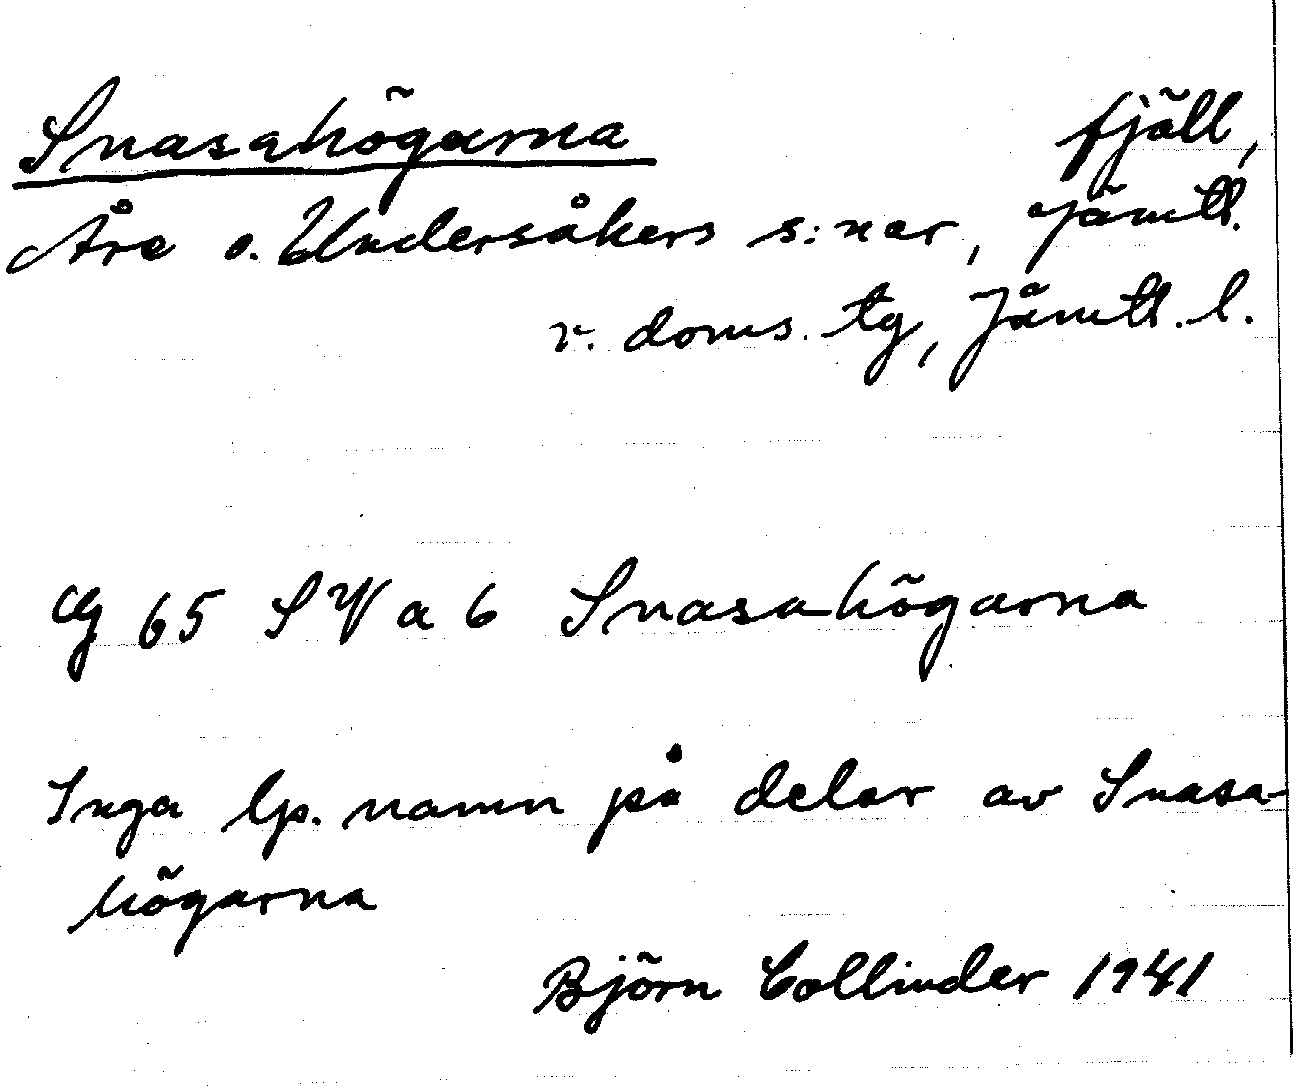 Snasahögarna fjäll,
Åre o. Undersåkers s:nar, Jämtl.
v. doms. tg, Jämtl. l.
Cg 65 SV a 6 Snasahögarna
Inga lp. namn på delar av Snasa-
högarna
Björn Collinder 1941